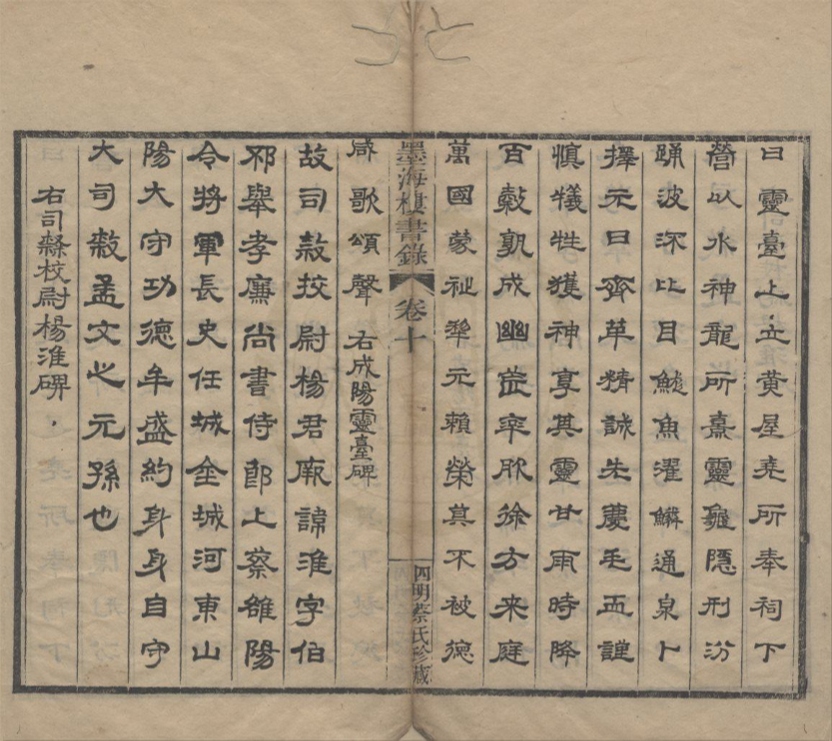 曰靈臺上立黃屋堯所奉祠下
營以水神龍所熹靈龜隱刑汾
踊波深比目魚濯鱗通泉卜
擇元日齊革精誠先慶毛血謹
慎犧牲獲神享其靈甘雨時降
百穀孰成幽荒率服徐方來庭
萬國蒙祉犂元賴榮莫不被德
墨海樓書錄 卷十 四明蔡氏珍藏
咸歌頌聲 右成陽靈臺碑
故司隸校尉楊君厥諱淮字伯
邳舉孝廉尚書侍郎上蔡雒陽
令將軍長史任城金城河東山
陽大守功德牟盛約身身自守
大司隸孟文之元孫也
右司隸校尉楊淮碑